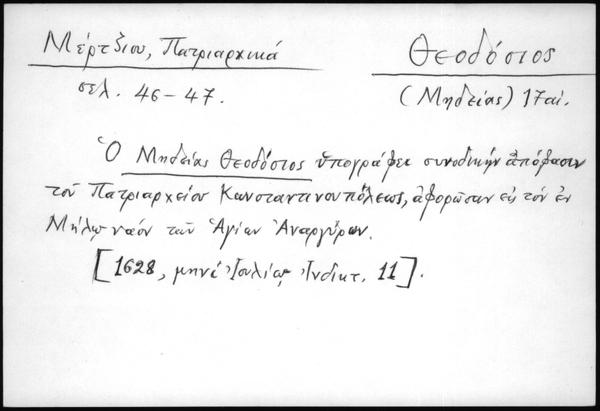 Μέρτζιου, Πατριαρχικά
σελ. 46-47.
Θεοδόσιος
(Μηδείας) 17 αἰ.
Ὁ Μηδείας Θεοδόσιος ὑπογράφει συνοδικὴν ἀπόφασιν
τοῦ Πατριαρχείου Κωνσταντινουπόλεως, ἀφορῶσαν εἰς τὸν ἐν
Μήλῳ ναὸν τῶν Ἁγίων Ἀναργύρων.
[1628, μηνὶ Ἰουλίῳ, Ἰνδικτ. 11].